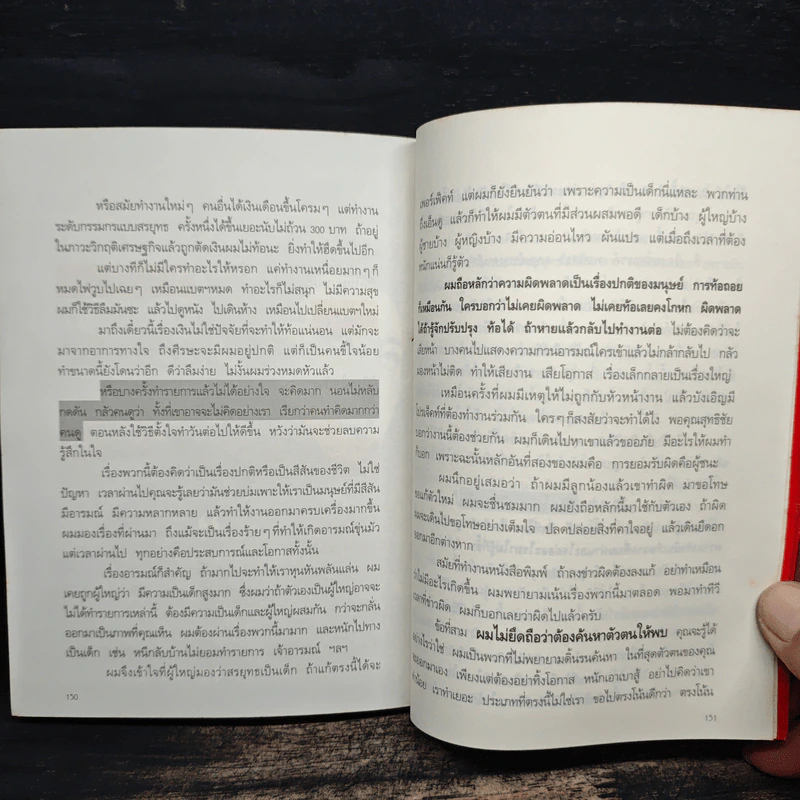 หรือสมัยทำงานใหม่ๆ คนอื่นได้เงินเดือนขึ้นโครมๆ แต่ทำงาน
ระดับกรรมกรแบบสรยุทธ ครึ่งหนึ่งได้ขึ้นเยอะนับไม่ถ้วน 300 บาท ถ้าอยู่
ในภาวะวิกฤติเศรษฐกิจแล้วถูกตัดเงินผมไม่ท้อนะ ยิ่งทำให้ฮึดขึ้นไปอีก
แต่บางทีก็ไม่มีใครทำอะไรให้หรอก แค่ทำงานเหนื่อยมากๆ ก็
หมดไฟวูบไปเฉยๆ เหมือนแบตฯหมด ทำอะไรก็ไม่สนุก ไม่มีความสุข
ผมก็ใช้วิธีลืมมันซะ แล้วไปดูหนัง ไปเดินห้าง เหมือนไปเปลี่ยนแบตฯใหม่
มาถึงเดี๋ยวนี้เรื่องเงินไม่ใช่ปัจจัยที่จะทำให้ท้อแน่นอน แต่มักจะ
มาจากอาการทางใจ ถึงศีรษะจะมีผมอยู่ปกติ แต่ก็เป็นคนขี้ใจน้อย
ทำขนาดนี้ยังโดนว่าอีก ดีว่าลืมง่าย ไม่งั้นผมร่วงหมดหัวแล้ว
หรือบางครั้งทำรายการแล้วไม่ได้อย่างใจ จะคิดมาก นอนไม่หลับ
กดดัน กลัวคนดูว่า ทั้งที่เขาอาจจะไม่คิดอย่างเรา เรียกว่าคนทำคิดมากกว่า
คนดู ตอนหลังใช้วิธีตั้งใจทำวันต่อไปให้ดีขึ้น หวังว่ามันจะช่วยลบความ
รู้สึกในใจ
เรื่องพวกนี้ต้องคิดว่าเป็นเรื่องปกติหรือเป็นสีสันของชีวิต ไม่ใช่
ปัญหา เวลาผ่านไปคุณจะรู้เลยว่ามันช่วยบ่มเพาะให้เราเป็นมนุษย์ที่มีสีสัน
มีอารมณ์ มีความหลากหลาย แล้วทำให้งานออกมาครบเครื่องมากขึ้น
ผมมองเรื่องที่ผ่านมา ถึงแม้จะเป็นเรื่องร้ายๆ ที่ทำให้เกิดอารมณ์ขุ่นมัว
แต่เวลาผ่านไป ทุกอย่างคือประสบการณ์และโอกาสทั้งนั้น
เรื่องอารมณ์ก็สำคัญ ถ้ามากไปจะทำให้เราหุนหันพลันแล่น ผม
เคยถูกผู้ใหญ่ว่า มีความเป็นเด็กสูงมาก ซึ่งผมว่าถ้าตัวเองเป็นผู้ใหญ่อาจจะ
ไม่ได้ทำรายการเหล่านี้ ต้องมีความเป็นเด็กและผู้ใหญ่ผสมกัน กว่าจะกลั่น
ออกมาเป็นภาพที่คุณเห็น ผมต้องผ่านเรื่องพวกนี้มามาก และหนักไปทาง
เป็นเด็ก เช่น หนีกลับบ้านไม่ยอมทำรายการ เจ้าอารมณ์ ฯลฯ
ผมจึงเข้าใจที่ผู้ใหญ่มองว่าสรยุทธเป็นเด็ก ถ้าแก้ตรงนี้ได้จะ
150
เพอร์เฟ็คท์ แต่ผมก็ยังยืนยันว่า เพราะความเป็นเด็กนี่แหละ พวกท่าน
ถึงเอ็นดู แล้วก็ทำให้ผมมีตัวตนที่มีส่วนผสมพอดี เด็กบ้าง ผู้ใหญ่บ้าง
ผู้ชายบ้าง ผู้หญิงบ้าง มีความอ่อนไหว ผันแปร แต่เมื่อถึงเวลาที่ต้อง
หนักแน่นก็รู้ตัว
ผมถือหลักว่าความผิดพลาดเป็นเรื่องปกติของมนุษย์ การท้อถอย
ก็เหมือนกัน ใครบอกว่าไม่เคยผิดพลาด ไม่เคยท้อเลยคงโกหก ผิดพลาด
ได้ถ้ารู้จักปรับปรุง ท้อได้ ถ้าหายแล้วกลับไปทำงานต่อ ไม่ต้องคิดว่าจะ
เสียหน้า บางคนไปแสดงความกวนอารมณ์ใครเข้าแล้วไม่กล้ากลับไป กลัว
มองหน้าไม่ติด ทำให้เสียงาน เสียโอกาส เรื่องเล็กกลายเป็นเรื่องใหญ่
เหมือนครั้งที่ผมมีเหตุให้ไม่ถูกกับหัวหน้างาน แล้วบังเอิญมี
โปรเจ็คท์ที่ต้องทำงานร่วมกัน ใครๆ ก็สงสัยว่าจะทำได้ไง พอคุณสุทธิชัย
บอกว่างานนี้ต้องช่วยกัน ผมก็เดินไปหาเขาแล้วขออภัย มีอะไรให้ผมทำ
ก็บอก เพราะฉะนั้นหลักอันที่สองของผมคือ การยอมรับผิดคือผู้ชนะ
ผมนึกอยู่เสมอว่า ถ้าผมมีลูกน้องแล้วเขาทำผิด มาขอโทษ
ขอแก้ตัวใหม่ ผมจะชื่นชมมาก ผมยังถือหลักนี้มาใช้กับตัวเอง ถ้าผิด
ผมจะเดินไปขอโทษอย่างเต็มใจ ปลดปล่อยสิ่งที่คาใจอยู่ แล้วเดินยืดอก
ออกมาอีกต่างหาก
สมัยที่ทำงานหนังสือพิมพ์ ถ้าลงข่าวผิดต้องลงแก้ อย่าทำเหมือน
ว่าไม่มีอะไรเกิดขึ้น ผมพยายามเน้นเรื่องพวกนี้มาตลอด พอมาทำทีวี
เวลาที่ข่าวผิด ผมก็บอกเลยว่าผิดไปแล้วครับ
ข้อที่สาม ผมไม่ยึดถือว่าต้องค้นหาตัวตนให้พบ คุณจะรู้ได้
อย่างไรว่าใช่ ผมเป็นพวกที่ไม่พยายามดิ้นรนค้นหา ในที่สุดตัวตนของคุณ
ออกมาเอง เพียงแต่ต้องอย่าทิ้งโอกาส หนักเอาเบาสู้ อย่าไปคิดว่าเขา
ทำน้อย เราทำเยอะ ประเภทที่ตรงนี้ไม่ใช่เรา ขอไปตรงโน้นดีกว่า ตรงโน้น
151